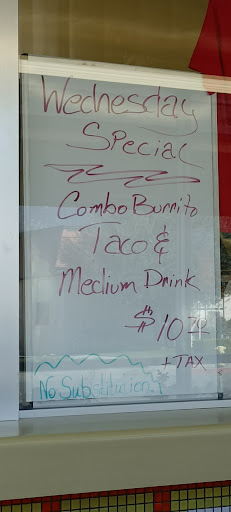 Wednesday
Special
Combo Burrito
Taco &
Medium Drink
$10.70
+TAX
No Substitucion